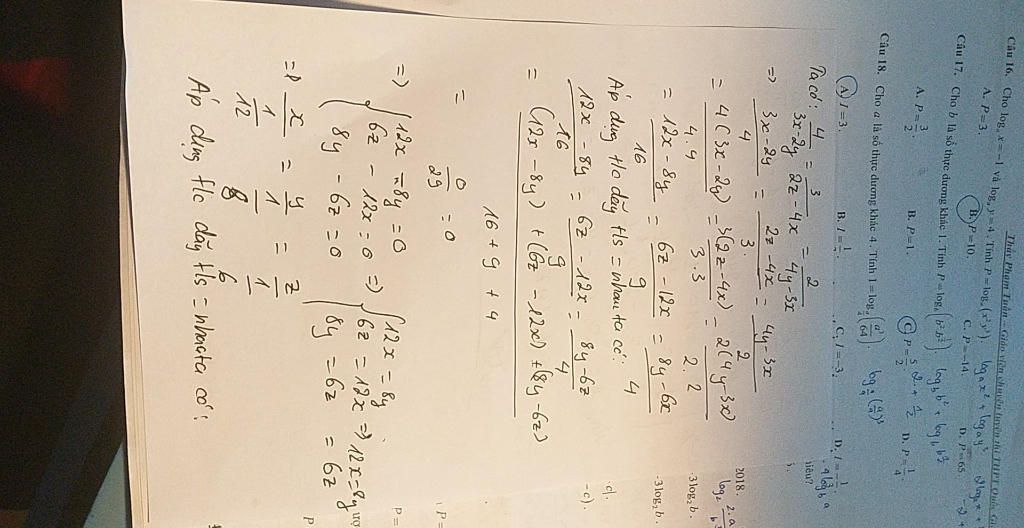 Thầy Phạm Tuấn – Giáo viên chuyên luyện thi THPT Quốc Gi
Câu 16. Cho logₐ x = −1 và logₐ y = 4. Tính P = logₐ(x²y³). logₐx² + logₐy³
A. P = 3. B. P = 10. C. P = −14. D. P = 65.
Câu 17. Cho b là số thực dương khác 1. Tính P = log_b(b².b^(1/2)). log_b b² + log_b b^(1/2)
A. P = 3/2. B. P = 1. C. P = 5/2. 2. + 1/2 D. P = 1/4.
Câu 18. Cho a là số thực dương khác 4. Tính I = log_(a/4)(a³/64). log_(a/4)(a/4)³
A. I = 3. B. I = 1/3. C. I = −3. D. I = −1/3.
Ta có: 4/(3x-2y) = 3/(2z-4x) = 2/(4y-3x)
=> (3x-2y)/4 = (2z-4x)/3 = (4y-3x)/2
= 4(3x-2y)/4.4 = 3(2z-4x)/3.3 = 2(4y-3x)/2.2
= (12x-8y)/16 = (6z-12x)/9 = (8y-6x)/4
Áp dụng t/c dãy t/s = nhau ta có:
(12x-8y)/16 = (6z-12x)/9 = (8y-6z)/4
= ((12x-8y) + (6z-12x) + (8y-6z))/(16+9+4)
= 0/29 = 0
=> { 12x-8y=0 ; 6z-12x=0 ; 8y-6z=0 => { 12x=8y ; 6z=12x ; 8y=6z => 12x=8y=6z
=> x/(1/12) = y/(1/8) = z/(1/6)
Áp dụng t/c dãy t/s = nhau ta có:
2018.
3log₂b.
3log₂b.
c).
-c).
P =
P =
P